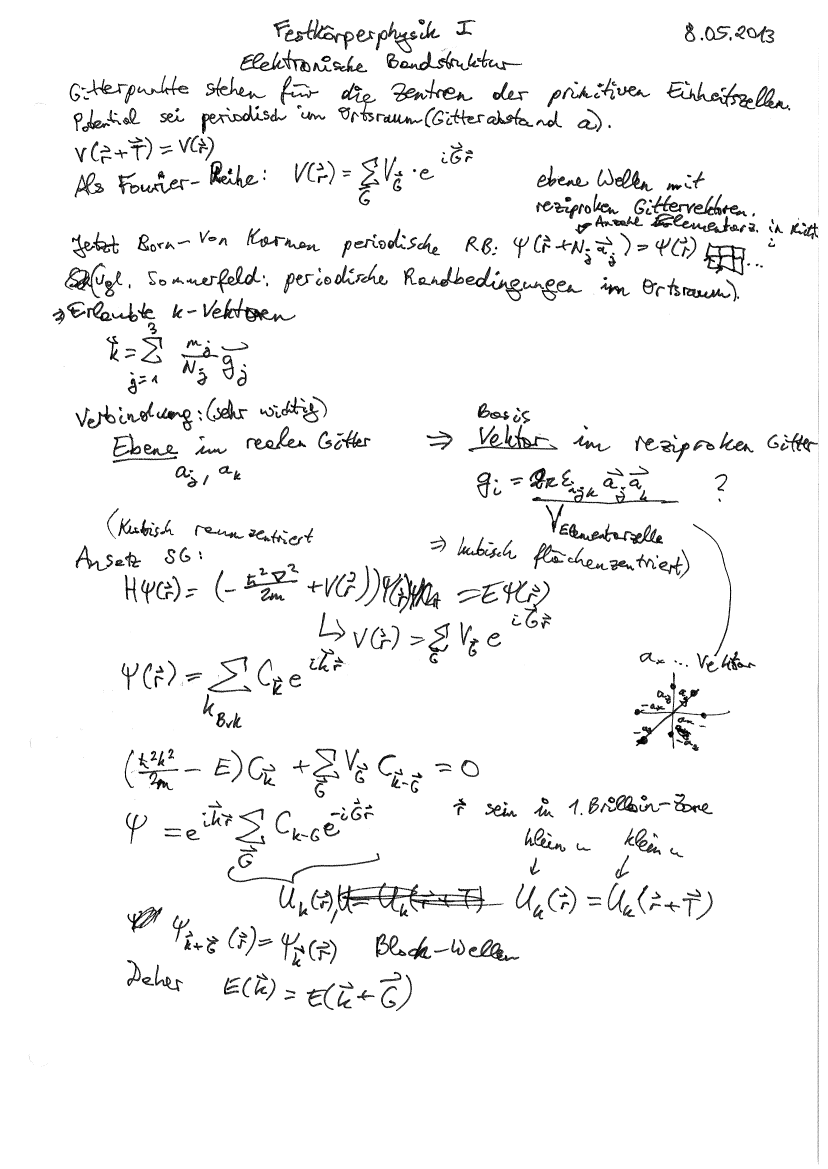 Festkörperphysik I 8.05.2013
Elektronische Bandstruktur
Gitterpunkte stehen für die Zentren der primitiven Einheitszellen.
Potential sei periodisch im Ortsraum (Gitterabstand a).
V(r⃗+T⃗) = V(r⃗)
Als Fourier-Reihe: V(r⃗) = ∑_G⃗ V_G⃗ · e^{iG⃗r⃗}
ebene Wellen mit
reziproken Gittervektoren.
Anzahl Elementarz. in Richt.
i
Jetzt Born-Von Karman periodische RB: Ψ(r⃗ + N_j a⃗_j) = Ψ(r⃗) ...
(Vgl. Sommerfeld: periodische Randbedingungen im Ortsraum).
⇒ Erlaubte k-Vektoren
k⃗ = ∑_{j=1}^{3} m_j/N_j g⃗_j
Verbindung: (sehr wichtig)
Ebene im realen Gitter ⇒ Basis Vektor im reziproken Gitter
a_j, a_k
g_i = 2π ε_{ijk} a⃗_j a⃗_k / V_Elementarzelle ?
(Kubisch raumzentriert ⇒ kubisch flächenzentriert)
Ansatz SG:
HΨ(r⃗) = (-ℏ²∇²/2m + V(r⃗))Ψ(r⃗) = EΨ(r⃗)
↳ V(r⃗) = ∑_G⃗ V_G⃗ e^{iG⃗r⃗}
a_x ... Vektor
Ψ(r⃗) = ∑_{k BvK} C_k⃗ e^{ik⃗r⃗}
(ℏ²k²/2m - E)C_k⃗ + ∑_G⃗ V_G⃗ C_{k⃗-G⃗} = 0
r⃗ sein in 1. Brilloin-Zone
Ψ = e^{ik⃗r⃗} ∑_G⃗ C_{k-G} e^{-iG⃗r⃗}
klein u klein u
↓ ↓
U_k(r⃗), U_k(r⃗) = U_k(r⃗+T⃗)
Ψ_{k⃗+G⃗}(r⃗) = Ψ_k⃗(r⃗) Bloch-Wellen
Daher E(k⃗) = E(k⃗ + G⃗)